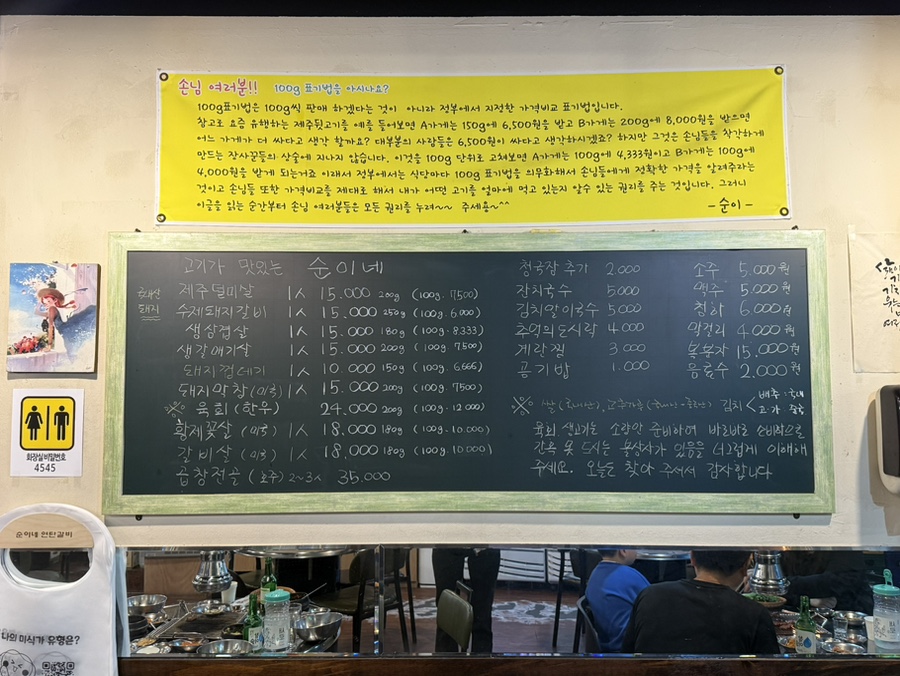 손님 여러분!! 100g 표기법을 아시나요?
100g표기법은 100g씩 판매 하겠다는 것이 아니라 정부에서 지정한 가격비교 표기법입니다.
참고로 요즘 유행하는 제주뒷고기를 예를 들어보면 A가게는 150g에 6,500원을 받고 B가게는 200g에 8,000원을 받으면
어느 가게가 더 싸다고 생각 할까요? 대부분의 사람들은 6,500원이 싸다고 생각하시겠죠? 하지만 그것은 손님들을 착각하게
만드는 장사꾼들의 상술에 지나지 않습니다. 이것을 100g 단위로 고쳐보면 A가게는 100g에 4,333원이고 B가게는 100g에
4,000원을 받게 되는거죠 이래서 정부에서는 식당마다 100g 표기법을 의무화해서 손님들에게 정확한 가격을 알려주라는
것이고 손님들 또한 가격비교를 제대로 해서 내가 어떤 고기를 얼마에 먹고 있는지 알수 있는 권리를 주는 것입니다. 그러니
이글을 읽는 순간부터 손님 여러분들은 모든 권리를 누려~~ 주세용~^^ -순이-
고기가 맛있는 순이네
국내산
돼지
제주덜미살 1人 15.000 200g (100g.7500)
수제돼지갈비 1人 15.000 250g (100g.6.000)
생삼겹살 1人 15.000 180g (100g.8.333)
생갈매기살 1人 15.000 200g (100g.7500)
돼지껍데기 1人 10.000 150g (100g.6.666)
돼지막창(미국) 1人 15.000 200g (100g.7500)
※ 육회(한우) 24.000 200g (100g.12.000)
황제꽃살 (미국) 1人 18.000 180g (100g.10.000)
갈비살 (미국) 1人 18.000 180g (100g.10.000)
곱창전골 (호주) 2~3人 35.000
청국장추가 2.000
잔치국수 5.000
김치말이국수 5.000
추억의도시락 4.000
계란찜 3.000
공기밥 1.000
소주 5.000원
맥주 5.000원
청하 6.000원
막걸리 4.000원
복분자 15.000원
음료수 2.000원
※ 쌀(국내산), 고추가루(국내산+중국산) 김치 < 배추:국내
고가 중국
육회 생고기는 소량만 준비하여 바로바로 소비하므로
간혹 못 드시는 불상사가 있음을 너그럽게 이해해
주세요. 오늘도 찾아 주셔서 감사합니다
화장실 비밀번호
4545
순이네 연탄갈비
나의 미식가 유형은?